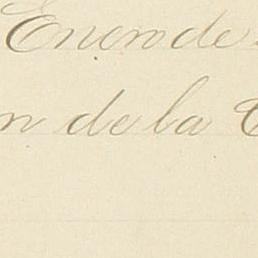 Enero de
n de la